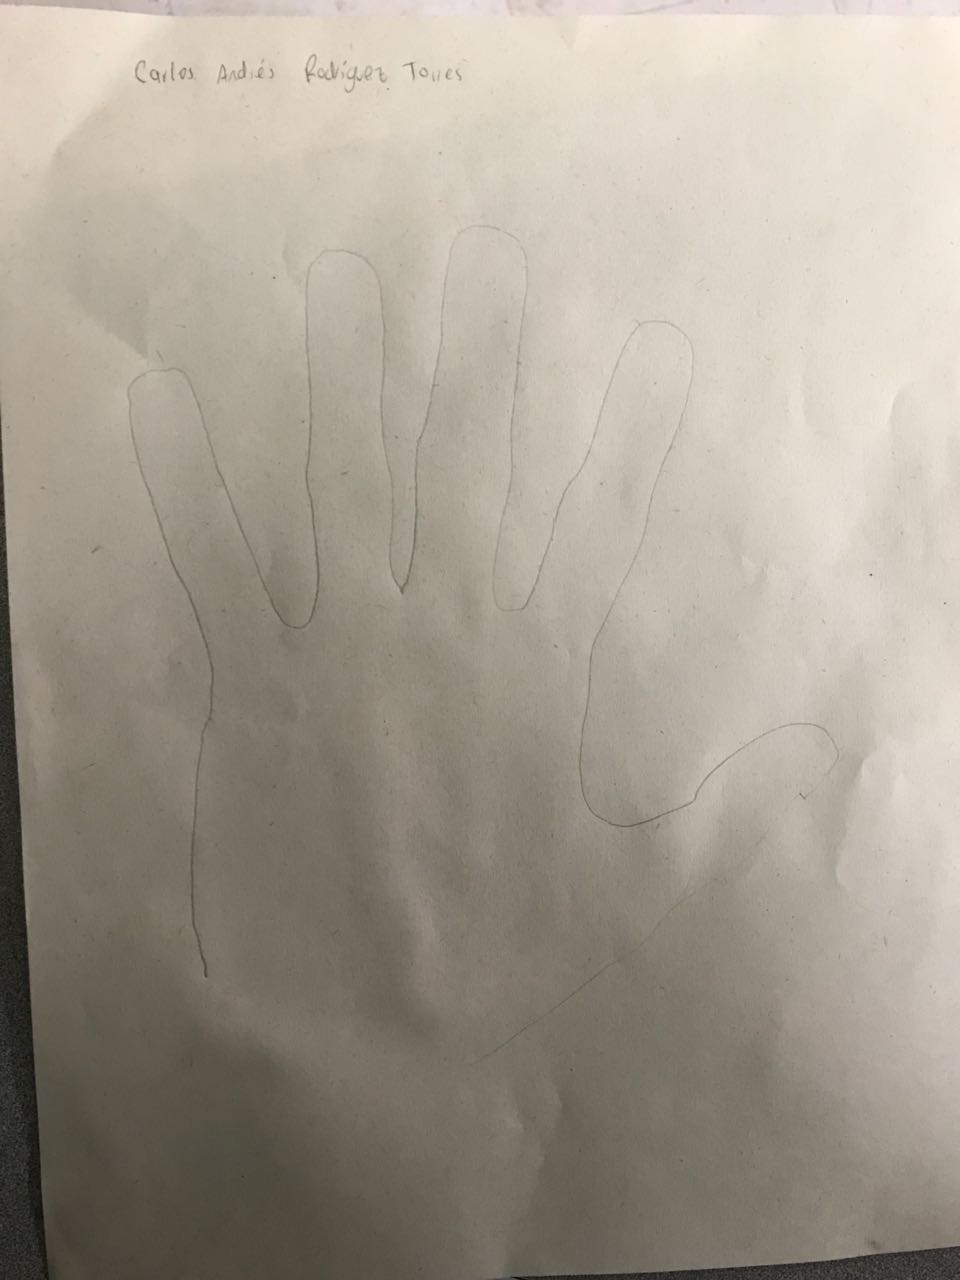 Carlos Andrés Rodríguez Torres